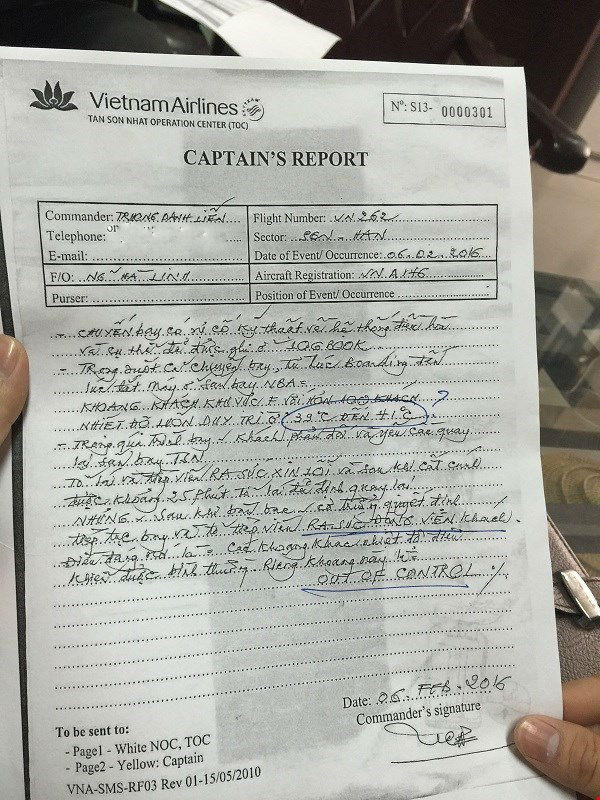 Vietnam Airlines
TAN SON NHAT OPERATION CENTER (TOC)
Nº: S13- 0000301
CAPTAIN'S REPORT
Commander: TRƯƠNG DANH LIỄN
Flight Number: VN 262
Telephone:
Sector: SGN - HAN
E-mail:
Date of Event/ Occurrence: 06.02.2016
F/O: NG HÀ LINH
Aircraft Registration: VN A146
Purser:
Position of Event/ Occurrence
- CHUYẾN bay có sự cố kỹ thuật về hệ thống điều hòa
và cụ thể đã được ghi ở LOGBOOK
- Trong suốt cả chuyến bay, từ lúc Boarding đến
lúc tắt máy ở sân bay NBA:
KHOANG KHÁCH KHU VỰC F VỚI HƠN 100 KHÁCH
NHIỆT ĐỘ LUÔN DUY TRÌ Ở 39°C ĐẾN 41°C ?
- Trong quá trình bay, khách phản đối và yêu cầu quay
lại sân bay TSN
Tổ lái và tiếp viên RA SỨC XIN LỖI và sau khi cất cánh
được khoảng 25 phút tổ lái đã định quay lại
NHƯNG sau khi bàn bạc, cơ trưởng quyết định
tiếp tục bay và tổ tiếp viên RA SỨC ĐỘNG VIÊN khách.
Điều đáng nói là: Các khoang khác nhiệt độ điều
khiển được bình thường. Riêng khoang này là
OUT OF CONTROL
Date: 06. FEB. 2016
Commander's signature
To be sent to:
- Page1 - White NOC, TOC
- Page2 - Yellow: Captain
VNA-SMS-RF03 Rev 01-15/05/2010